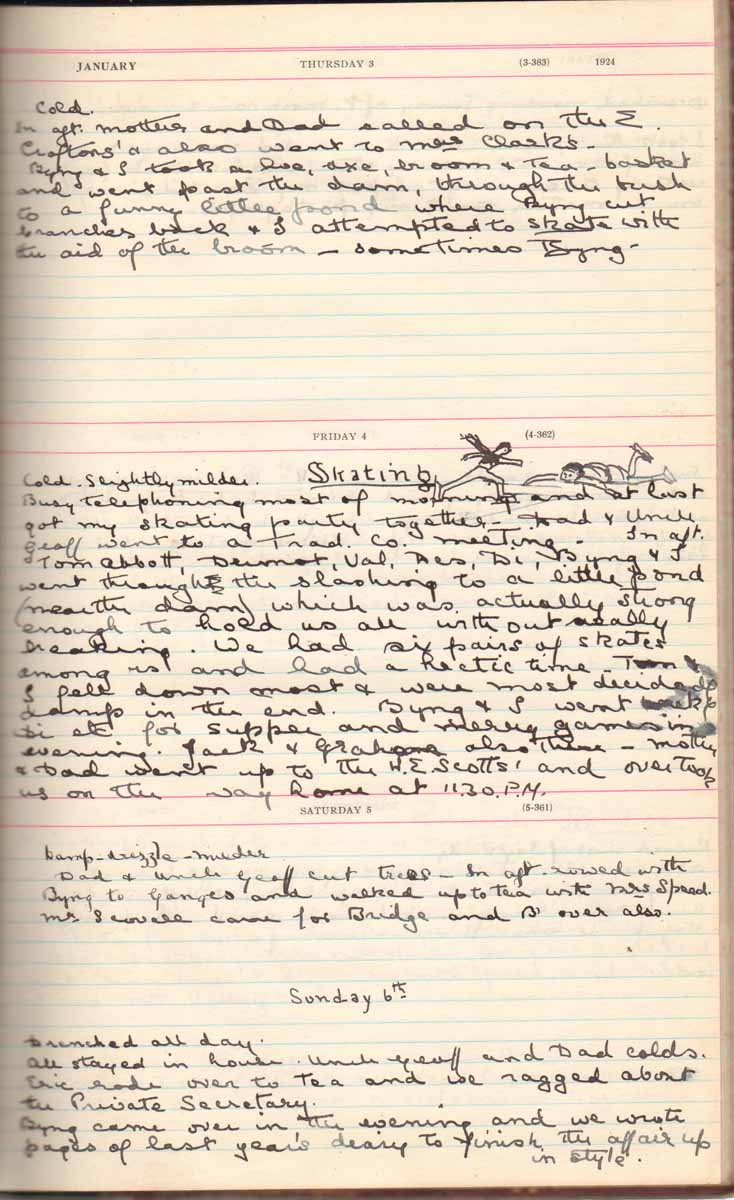 JANUARY THURSDAY 3 (3-363) 1924
Cold.
In aft. mother and Dad called on the E.
Croftons' & also went to Mrs Clark's -
Byng & I took a hoe, axe, broom & tea-basket
and went past the dam, through the bush
to a funny little pond where Byng cut
branches back & I attempted to skate with
the aid of the broom - sometimes Byng -
FRIDAY 4 (4-362)
Cold. Slightly milder. Skating
Busy telephoning most of morning and at last
got my skating party together - Dad & Uncle
Geoff went to a Trad. Co. meeting - In aft.
Tom Abbott, Dermot, Val, Des, Di, Byng & I
went through the slashing to a little pond
(near the dam) which was actually strong
enough to hold us all without really
breaking. We had six pairs of skates
among us and had a hectic time - Tom &
I fell down most & were most decidedly
damp in the end. Byng & I went back to
Di etc for supper and merry games in
evening. Jack & Graham also there - Mother
& Dad went up to the W.E. Scotts' and overtook
us on the way home at 11.30. P.M.
SATURDAY 5 (5-361)
Damp-drizzle-milder
Dad & Uncle Geoff cut trees - In aft. rowed with
Byng to Ganges and walked up to tea with Mrs Speed.
Mr Scovell came for Bridge and B' over also.
Sunday 6th
Drenched all day.
All stayed in house. Uncle Geoff and Dad colds.
Eric rode over to tea and we ragged about
the Private Secretary.
Byng came over in the evening and we wrote
pages of last year's deary to finish the affair up
in style.